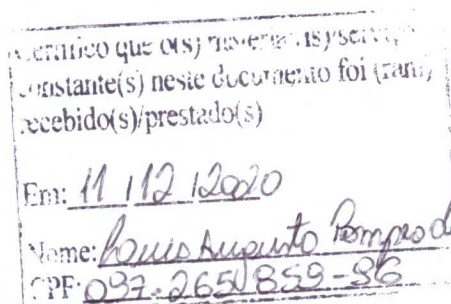 Certifico que o(s) material(is)/serviço
constante(s) neste documento foi (ram)
recebido(s)/prestado(s)
Em: 11/12/2020
Nome: Augusto
CPF: 097.265.859-96